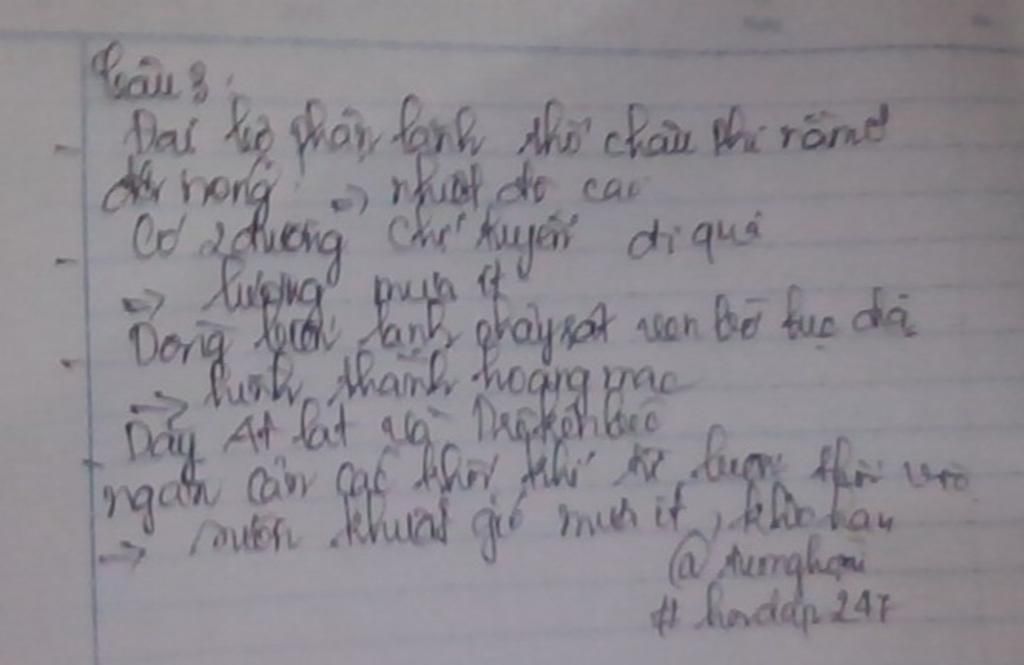 Câu 3:
- Đại bộ phận lãnh thổ châu Phi nằm ở
đới nóng => nhiệt độ cao
- Có 2 đường chí tuyến đi qua
=> lượng mưa ít
- Dòng biển lạnh chảy sát ven bờ lục địa
=> hình thành hoang mạc
- Dãy At lát và Đrêkenbec
ngăn cản các khối khí từ biển thổi vào
=> sườn khuất gió mưa ít, khô hạn
@tuonghoai
# hoidap247